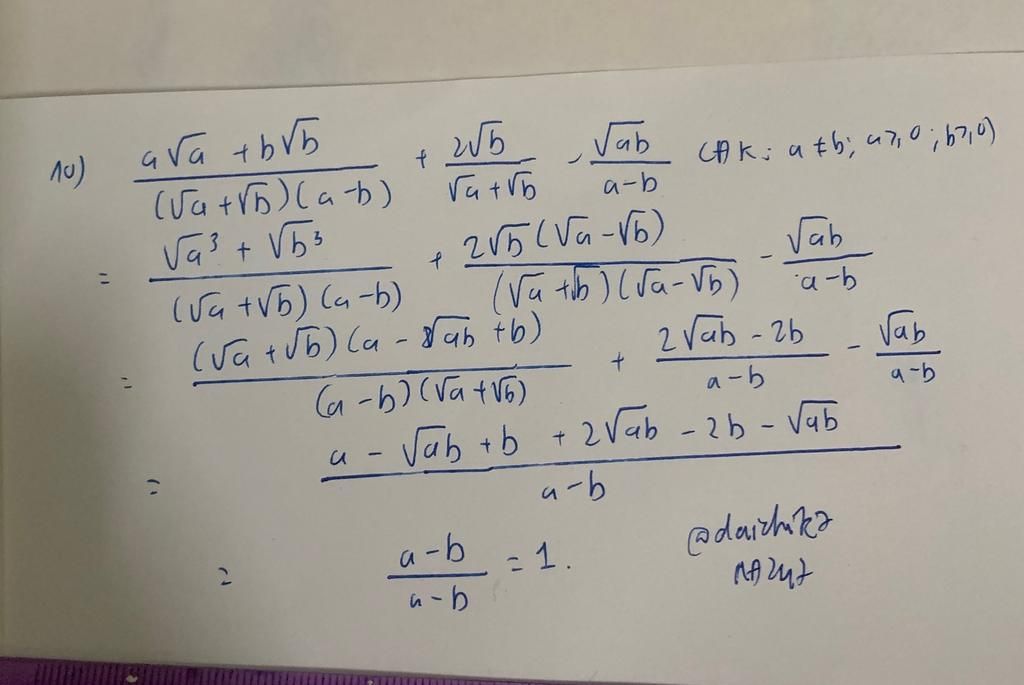 10) (a√a + b√b)/((√a + √b)(a - b)) + 2√b/(√a + √b) - √ab/(a - b) (ĐK: a ≠ b; a ≥ 0; b ≥ 0)
= (√a³ + √b³)/((√a + √b)(a - b)) + 2√b(√a - √b)/((√a + √b)(√a - √b)) - √ab/(a - b)
= (√a + √b)(a - √ab + b)/((a - b)(√a + √b)) + (2√ab - 2b)/(a - b) - √ab/(a - b)
= (a - √ab + b + 2√ab - 2b - √ab)/(a - b)
= (a - b)/(a - b) = 1.